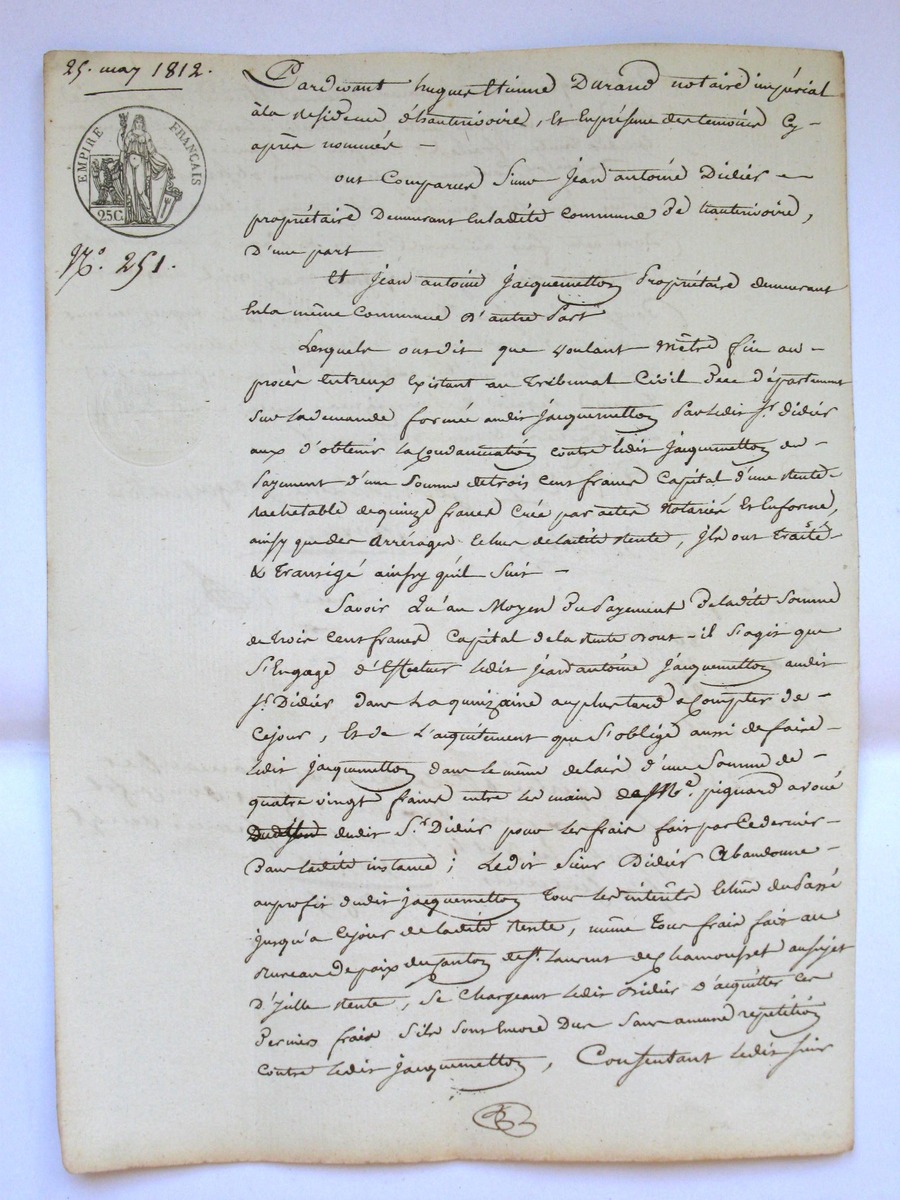 25. may 1812.
EMPIRE FRANÇAIS
25C.
N.º 251.
Pardevant hugues Etienne Durand notaire impérial
à la résidence d'hauterivoire, et en présence des temoins cy-
après nommés -
ont Comparus Sieur Jean antoine Didier
propriétaire Demeurant en ladite Commune de hauterivoire,
D'une part
Et Jean antoine Jacquemetton Propriétaire demeurant
En la même Commune D'autre Part
Lesquels ont dit que voulant Mettre fin au
procès Entreux Existant au Tribunal Civil de ce département
Sur la demande formée audit Jacquemetton Par ledit Sr. Didier
aux d'obtenir la Condamnation contre ledit Jacquemetton au
Payement d'une Somme de trois cent francs Capital d'une Rente
Rachetable de quinze francs Créé par actes Notariés Et En forme,
ainsy que des Arrérages Echus de ladite Rente, ils ont Traité
& Transigé ainsy qu'il Suit -
Savoir Qu'au Moyen du Payement de ladite Somme
de trois cent francs Capital de la Rente dont - il S'agit que
S'Engage D'Effectuer ledit Jean antoine Jacquemetton audit
Sr. Didier dans La quinzaine au plus tard a Compter de
Cejour, Et de L'acquitement que S'oblige aussi de faire
ledit Jacquemetton dans le même delaid d'une Somme de
quatre vingt francs entre les mains de Me. pignard avoué
dudit Sr. Didier pour les frais fait par Ce dernier
Dans ladite instance ; Ledit Sieur Didier Abandonne
au profit dudit Jacquemetton Tous les intérêts Echus du Passé
jusqu'a Cejour de ladite Rente, même Tous frais fait au
Bureau de paix du Canton de St. Laurent de Chamousset au sujet
D'ycelle Rente, Se Chargeant ledit Didier D'acquitter ces
Derniers frais S'ils Sont Encore Dus Sans aucune repetition
Contre ledit Jacquemetton, Consentant ledit Sieur